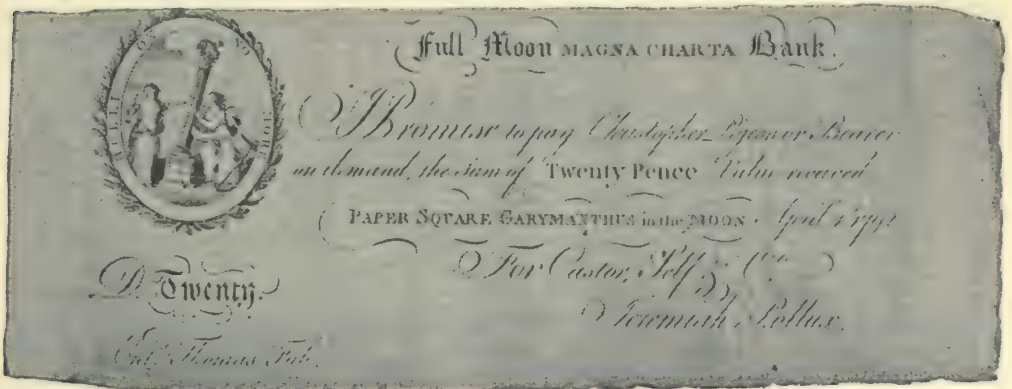 Full Moon MAGNA CHARTA Bank.
I Promise to pay Christopher or Bearer
on demand, the Sum of Twenty Pence Value received
PAPER SQUARE GARYMANTHUS in the MOON April
For Castor, Self & Co.
D. Twenty.
Jeremiah Pollux.
Entd. Thomas